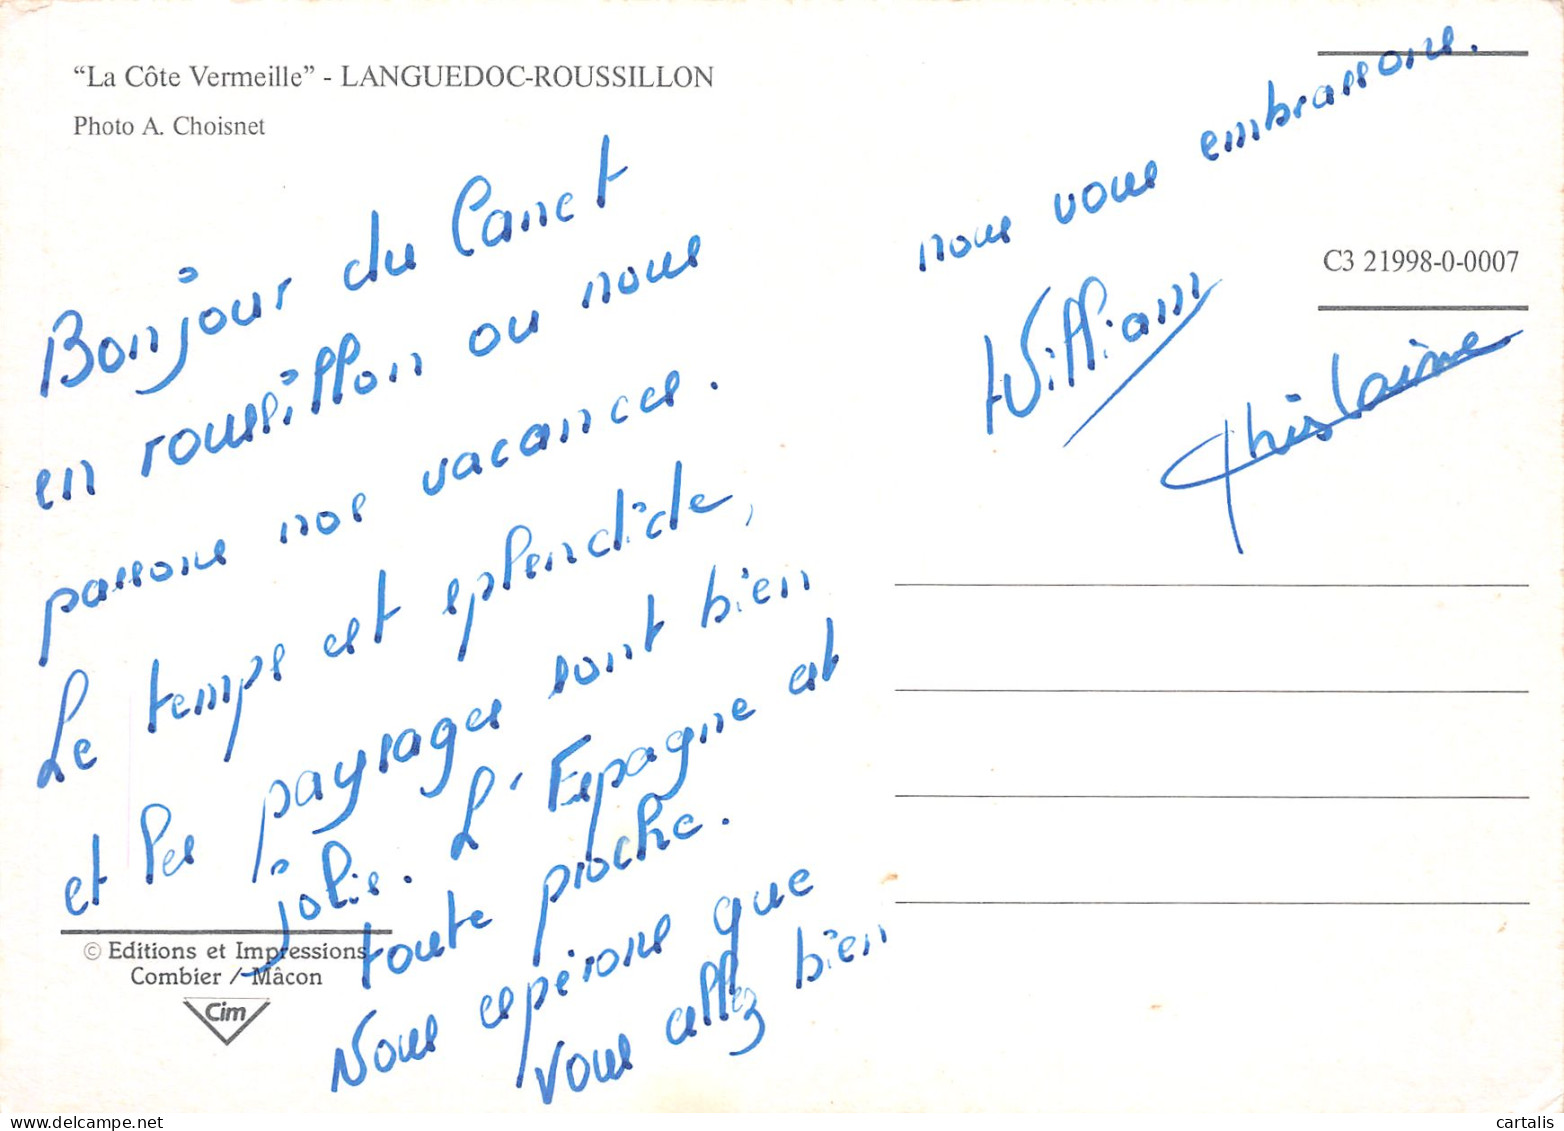 “La Côte Vermeille” - LANGUEDOC-ROUSSILLON
Photo A. Choisnet
Bonjour du Canet
en roussillon ou nous
passons nos vacances.
Le temps est splendide,
et les paysages sont bien
jolis. L'Espagne est
toute proche.
Nous espérons que
vous allez bien
nous vous embrassons.
William
Ghislaine
C3 21998-0-0007
© Editions et Impressions
Combier / Mâcon
Cim
cartalis